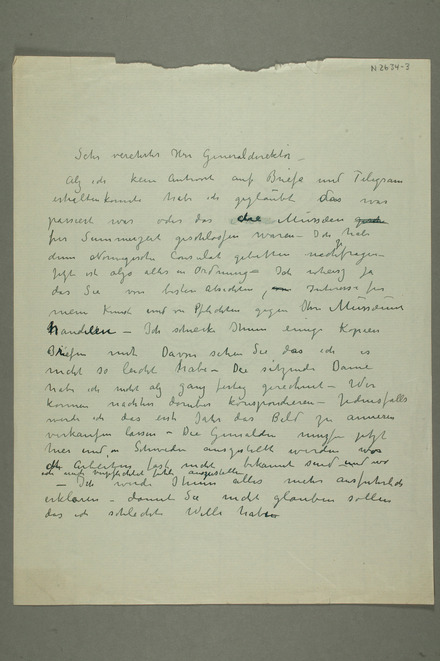 N 2634-3
Sehr verehrter Herr Generaldirektor
Als ich kein Antwort auf Briefe und Telegram
erhalten konnte habe ich geglaubt das was
passiert war oder das die Müsseen
für Summerzeit geschlossen waren – Ich habe
dem Norwegische Consulat gebetten nachfragen
Jetzt ist alles in Ordnung – Ich weiss ja
das Sie von besten Absichten, Interesse für
mein Kunst und von Pflichten gegen Ihr Müsseum
handelen – Ich schicke Ihnen einige Kopien
Briefen mit Davon sehen Sie das ich es
nicht so leicht habe – Die sitzende Dame
habe ich nicht als ganz fertig gerechnet – Wir
können nächstes darüber korrespondieren – Jedenfalls
werde ich das erste Jahr das Bild zu anderen
verkaufen lassen – Die Gemälden müssen jetzt
hier und in Schweden ausgestellt werden wo
die Arbeiten fast nicht bekannt sind und wo
ich mich verpflichtet fühle auszustellen
– Ich werde Ihnen alles mehr ausführlich
erklären – damit Sie nicht glauben sollen
das ich schlechte Wille habe